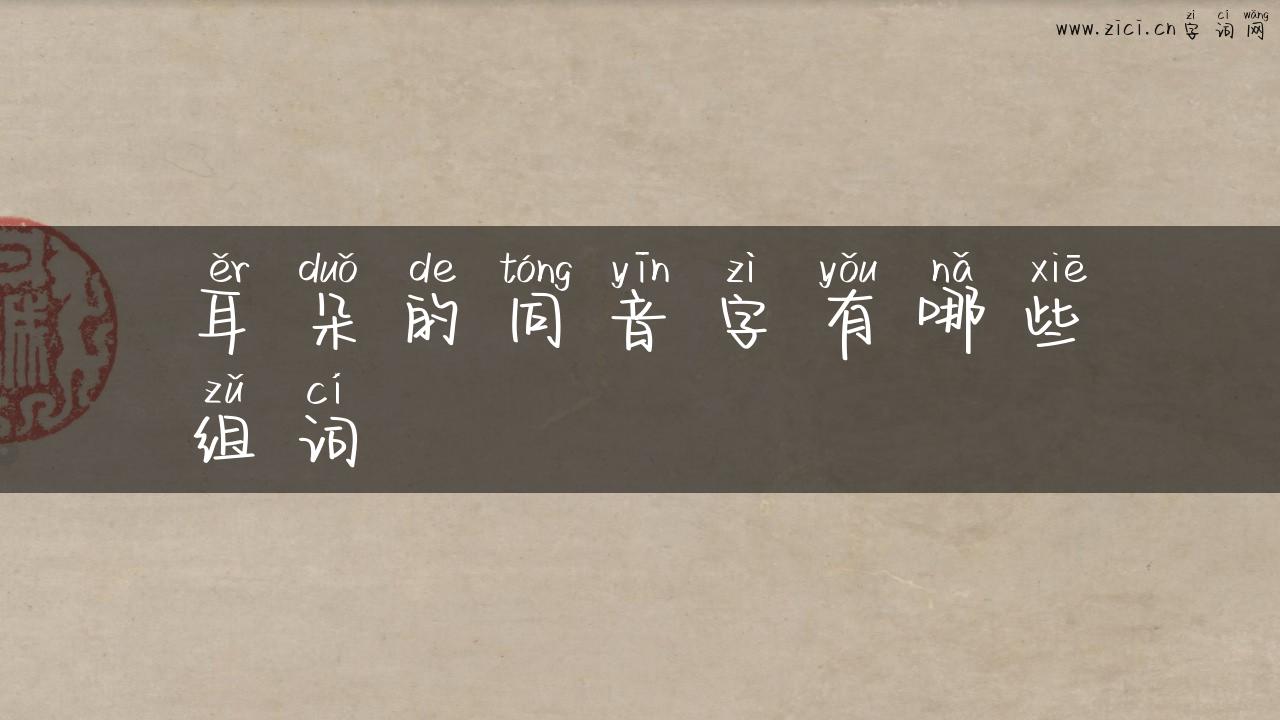 zì cí wǎng
www.zici.cn 字词网
ěr duǒ de tóng yīn zì yǒu nǎ xiē
耳朵的同音字有哪些
zǔ cí
组词